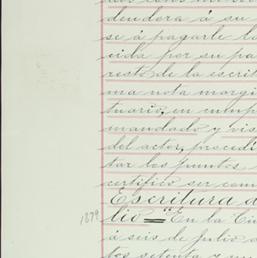 dos como
dendera á su
se á pagarle la
cida por su pa
resto de la escrit
ma nota margi
tuario, en cump
mandado y vis
del actor, procedi
tar los puntos
certifico ser com
Escritura d
1879
lio = En la Ciu
á seis de Julio d
tos setenta y un